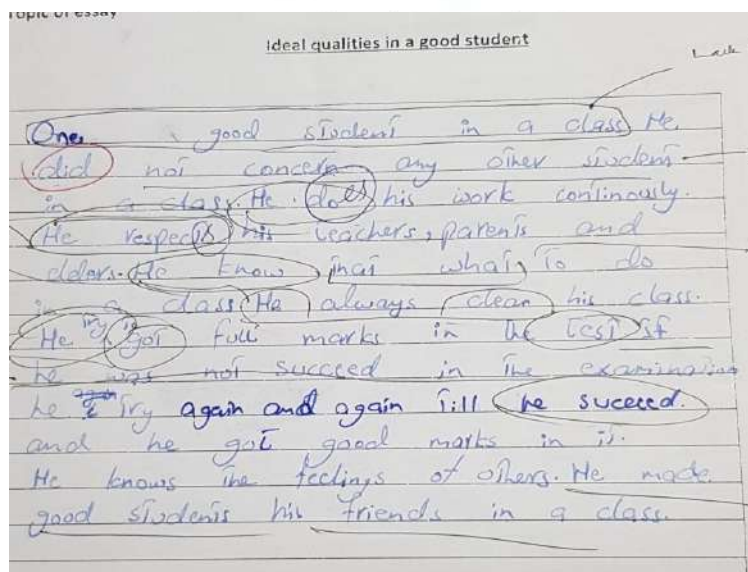 Topic of essay
Ideal qualities in a good student
Lack
One good student in a class. He
did not concern any other student
in a class. He does his work continously.
He respects his teachers, parents and
elders. He know that what to do
in a class. He always clean his class.
He try to got full marks in the test if
he was not succeed in the examination
he try again and again till he suceeed.
and he got good marks in it.
He knows the feelings of others. He made
good students his friends in a class.